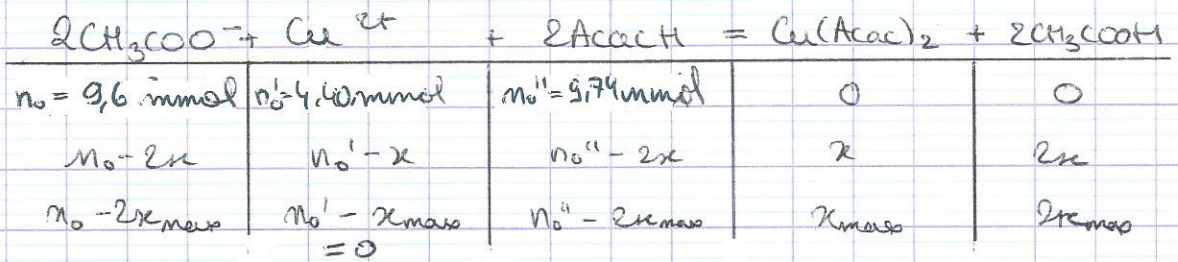 2CH₃COO⁻ + Cu²⁺ + 2AcacH = Cu(Acac)₂ + 2CH₃COOH
n₀ = 9,6 mmol n₀' = 4,40 mmol n₀'' = 9,74 mmol 0 0
n₀ - 2x n₀' - x n₀'' - 2x x 2x
n₀ - 2xmax n₀' - xmax n₀'' - 2xmax xmax 2xmax
= 0